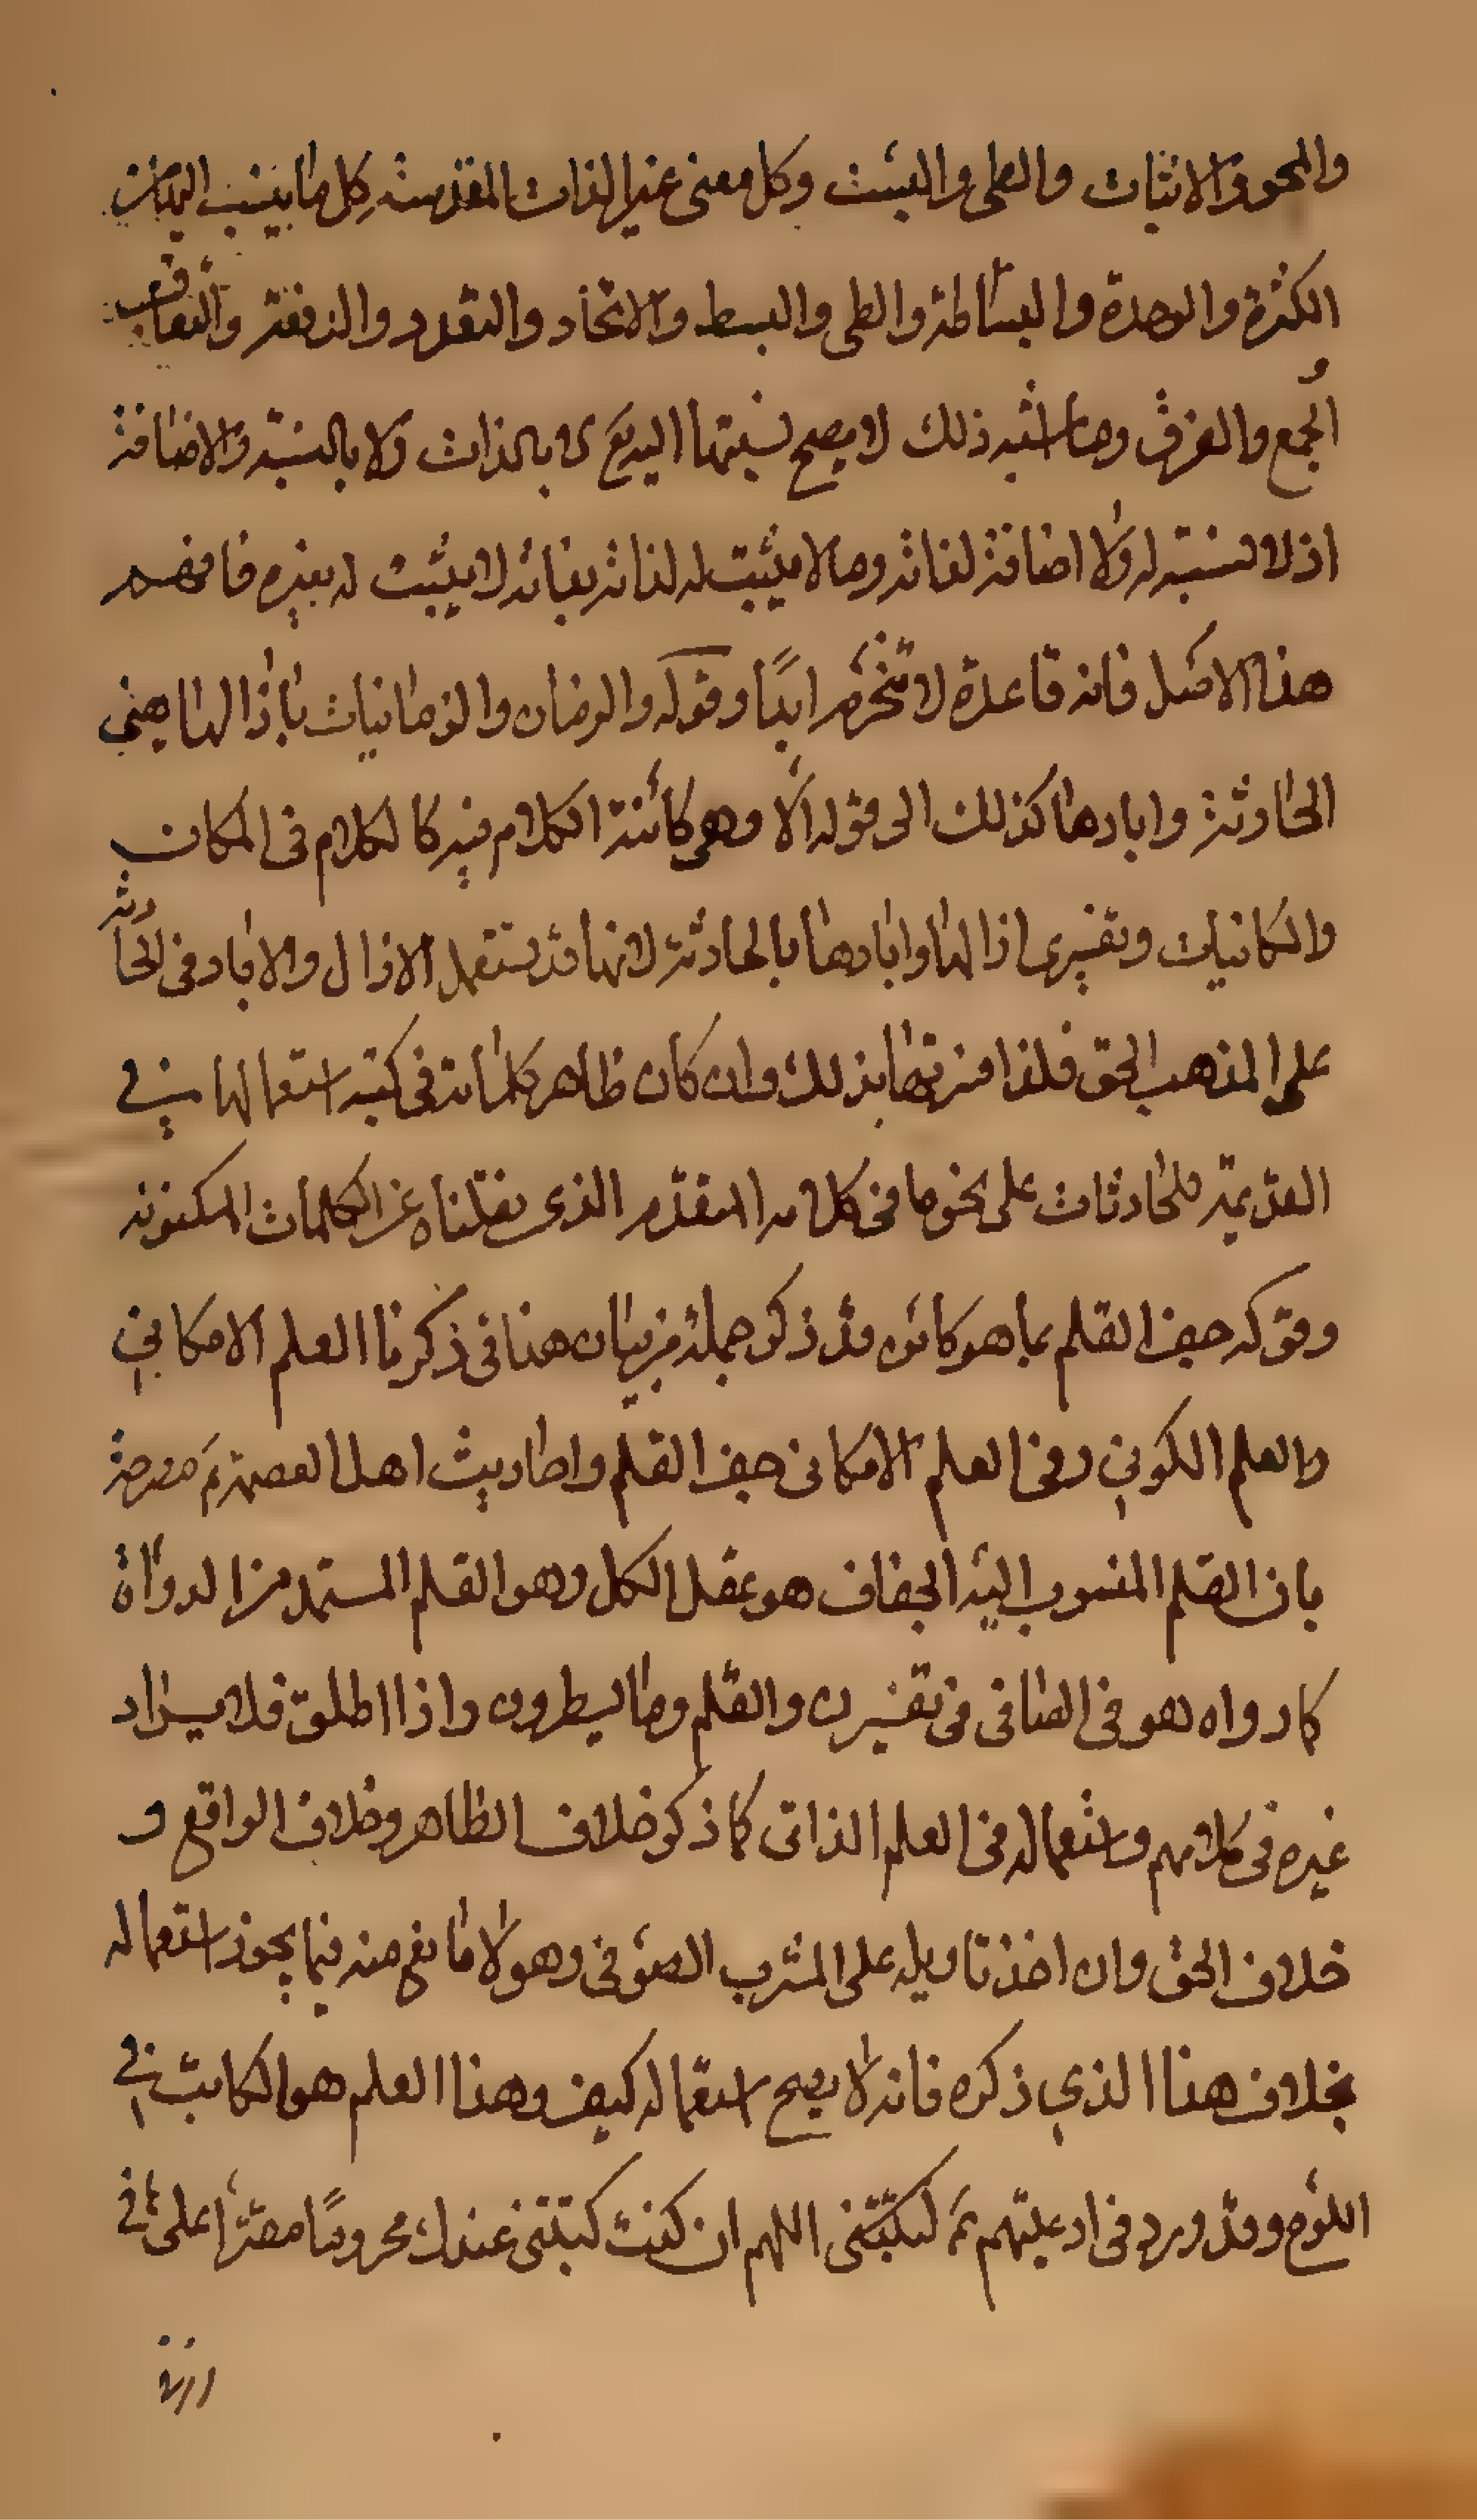 والمحو والاثبات والطي والبست وكل معنى غير الذات المقدسة وكل ما ينسب اليها من
الكثرة والوحدة والبساطة والطي والبسط والاتحاد والتعدد والدفعة والتعاقب و
الجمع والفرق وما اشبه ذلك لا يصح نسبتها اليه تع لا بالذات ولا بالنسبة والاضافة
اذ لا نسبة له ولا اضافة لذاته وما لا يثبت له لذاته بذاته لا يثبت له بغيره فافهم
هذا الاصل فانه قاعدة لا تنخرم ابدًا وقوله والزمان والزمانيات باذالها يعني
الحادثة وابادها كذلك الى قوله الا وهي كائنة الكلام فيه كالكلام في المكان
والمكانيات وتفسيري اذالها وابادها بالحادثة لانها قد تستعمل الازال والاباد في الحادثة
على المذهب الحق فلذا فسرتها بذلك وان كان ظاهر كلماته في كتبه استعمالها في
القديمة للحادثات على نحو ما في كلامه المتقدم الذي نقلناه عن الكلمات المكنونه
وقوله جف القلم بما هو كائن قد ذكر جملة من بيان هذا في ذكرنا العلم الامكاني
والعلم الكوني وفي العلم الامكاني جف القلم واحاديث اهل العصمة ع مصرحة
بان القلم المنسوب اليه الجفاف هو عقل الكل وهو القلم المستمد من الدواة
كما رواه هو في الصافي في تفسير ن والقلم وما يسطرون واذا اطلق فلا يراد
غيره في كلامهم واستعماله في العلم الذاتي كما ذكر خلاف الظاهر وخلاف الواقع و
خلاف الحق وان اخذ تاويله على المشرب الصوفي وهو لا مانع منه فيما يجوز استعماله
بخلاف هذا الذي ذكره فانه لا يصح استعماله كيف وهذا العلم هو الكاتب في
اللوح وقد ورد في ادعيتهم ع اللهم ان كنت كتبتني عندك محرومًا مقترا على في